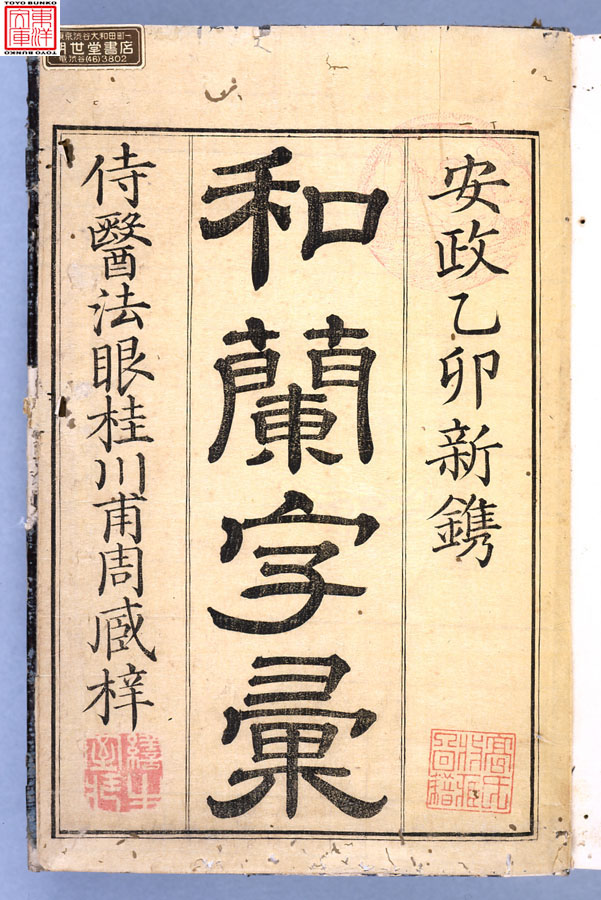 TOYO BUNKO
東洋文庫
TOYO BUNKO
東京渋谷大和田町一
明世堂書店
電渋谷(46)3802
安政乙卯新鐫
和蘭字彙
侍醫法眼桂川甫周臧梓